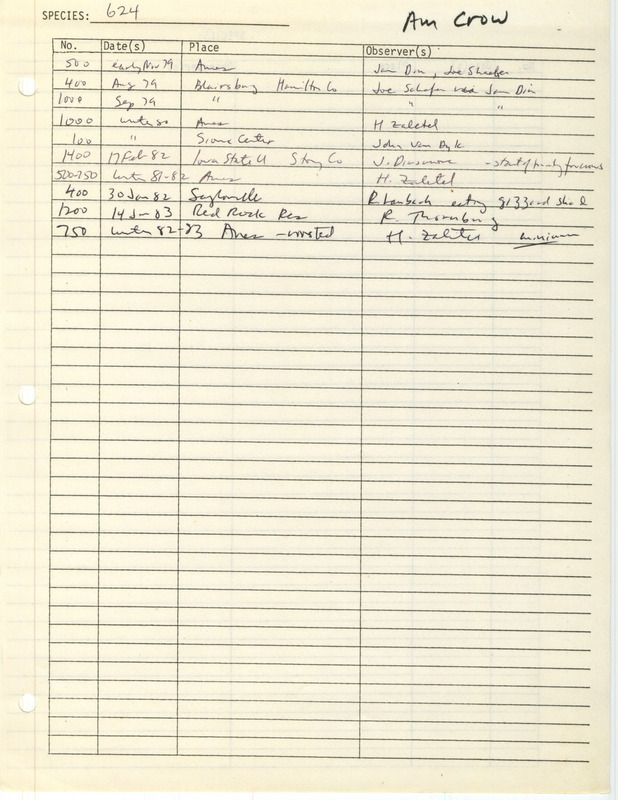 SPECIES: 624
Am Crow
No. Date(s) Place Observer(s)
500 early Nov 79 Ames Jim Din, Joe
400 Aug 79 Blairsburg Hamilton Co Joe Schafer via Jim Din
1000 Sep 79 " " "
1000 winter 80 Ames H Zaletel
100 " Sioux Center John Van Dyk
1400 17 Feb 82 Iowa State U Story Co J. Dinsmore - start of
500-750 winter 81-82 Ames H. Zaletel
400 30 Jan 82 Saylorville eating gizzard shad
1200 14 Jan 83 Red Rock Res R. Thornburg
750 winter 82-83 Ames - roosted H. Zaletel minimum